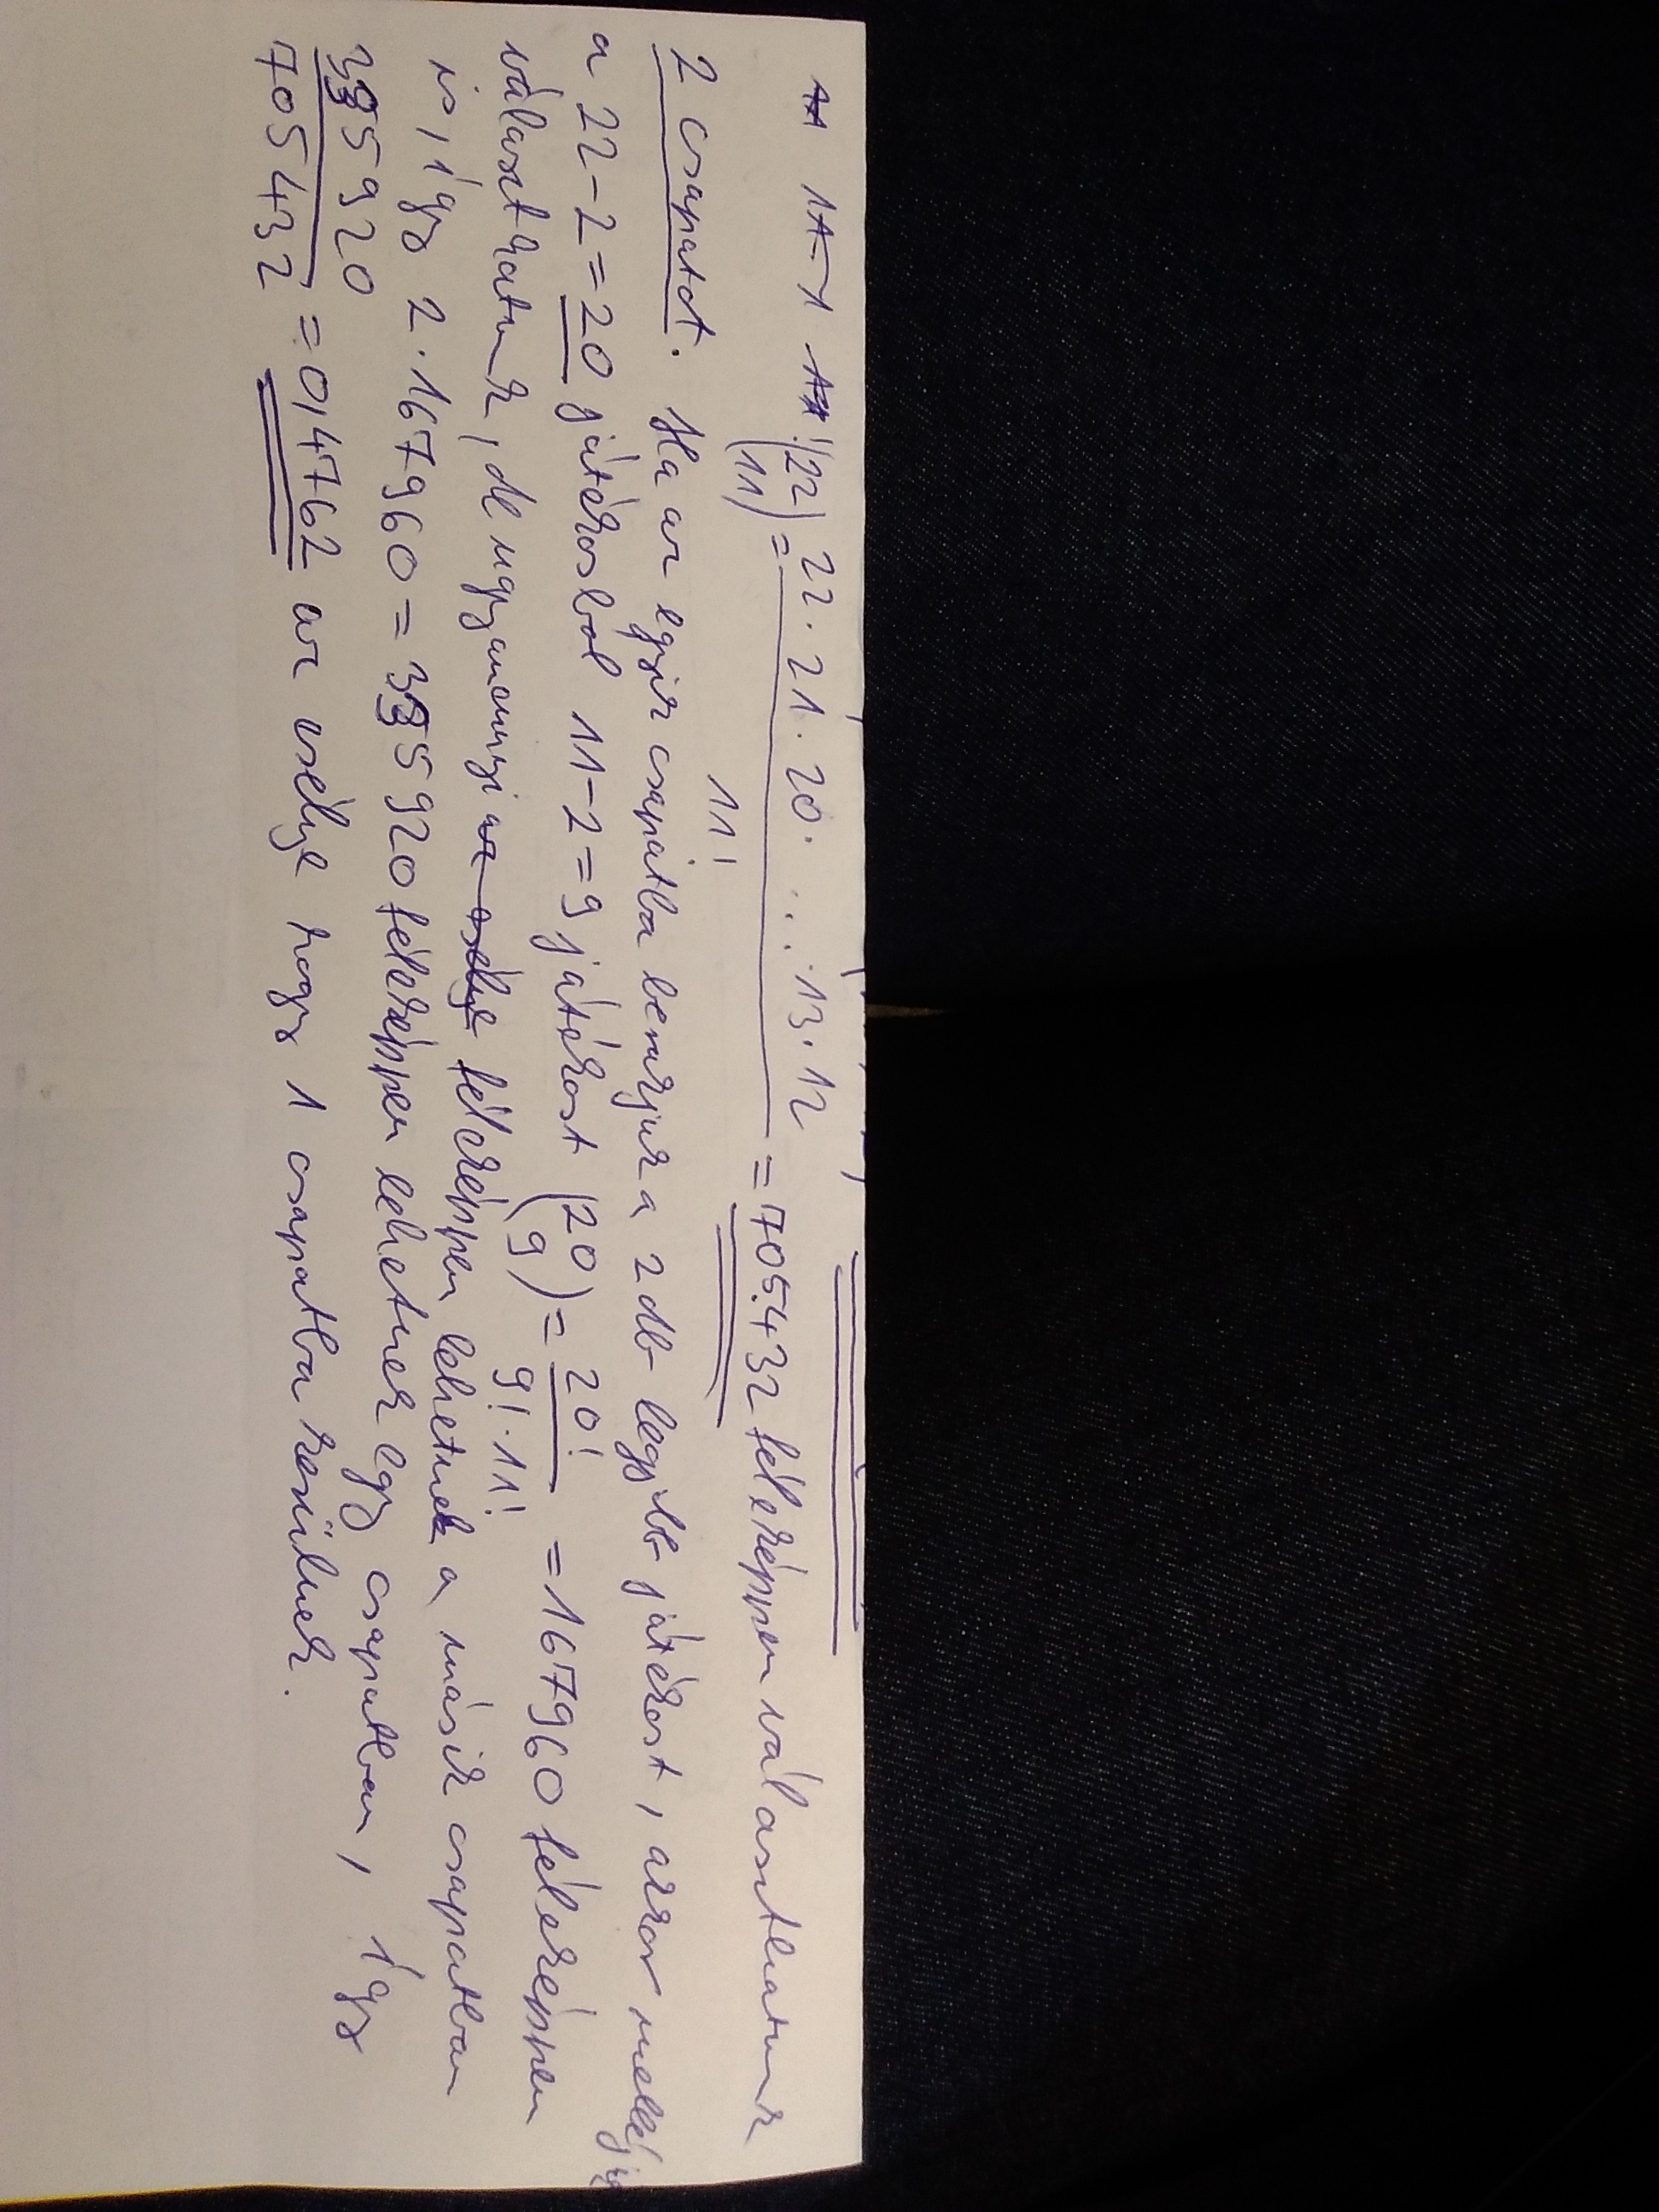 (22 11) = 22·21·20· ... ·13·12 / 11! = 705.432 féleképpen választhatunk
2 csapatot. Ha az egyik csapatba berakjuk a 2 db legjobb játékost, akkor melléjük
a 22-2=20 játékosból 11-2=9 játékost (20 9) = 20! / 9!·11! = 167960 féleképpen
választhatunk, de ugyanennyi az esélye féleképpen lehetnek a másik csapatban
is, így 2·167960 = 335920 féleképpen lehetnek egy csapatban, így
335920 / 705432 = 0,4762 az esélye hogy 1 csapatba kerülnek.